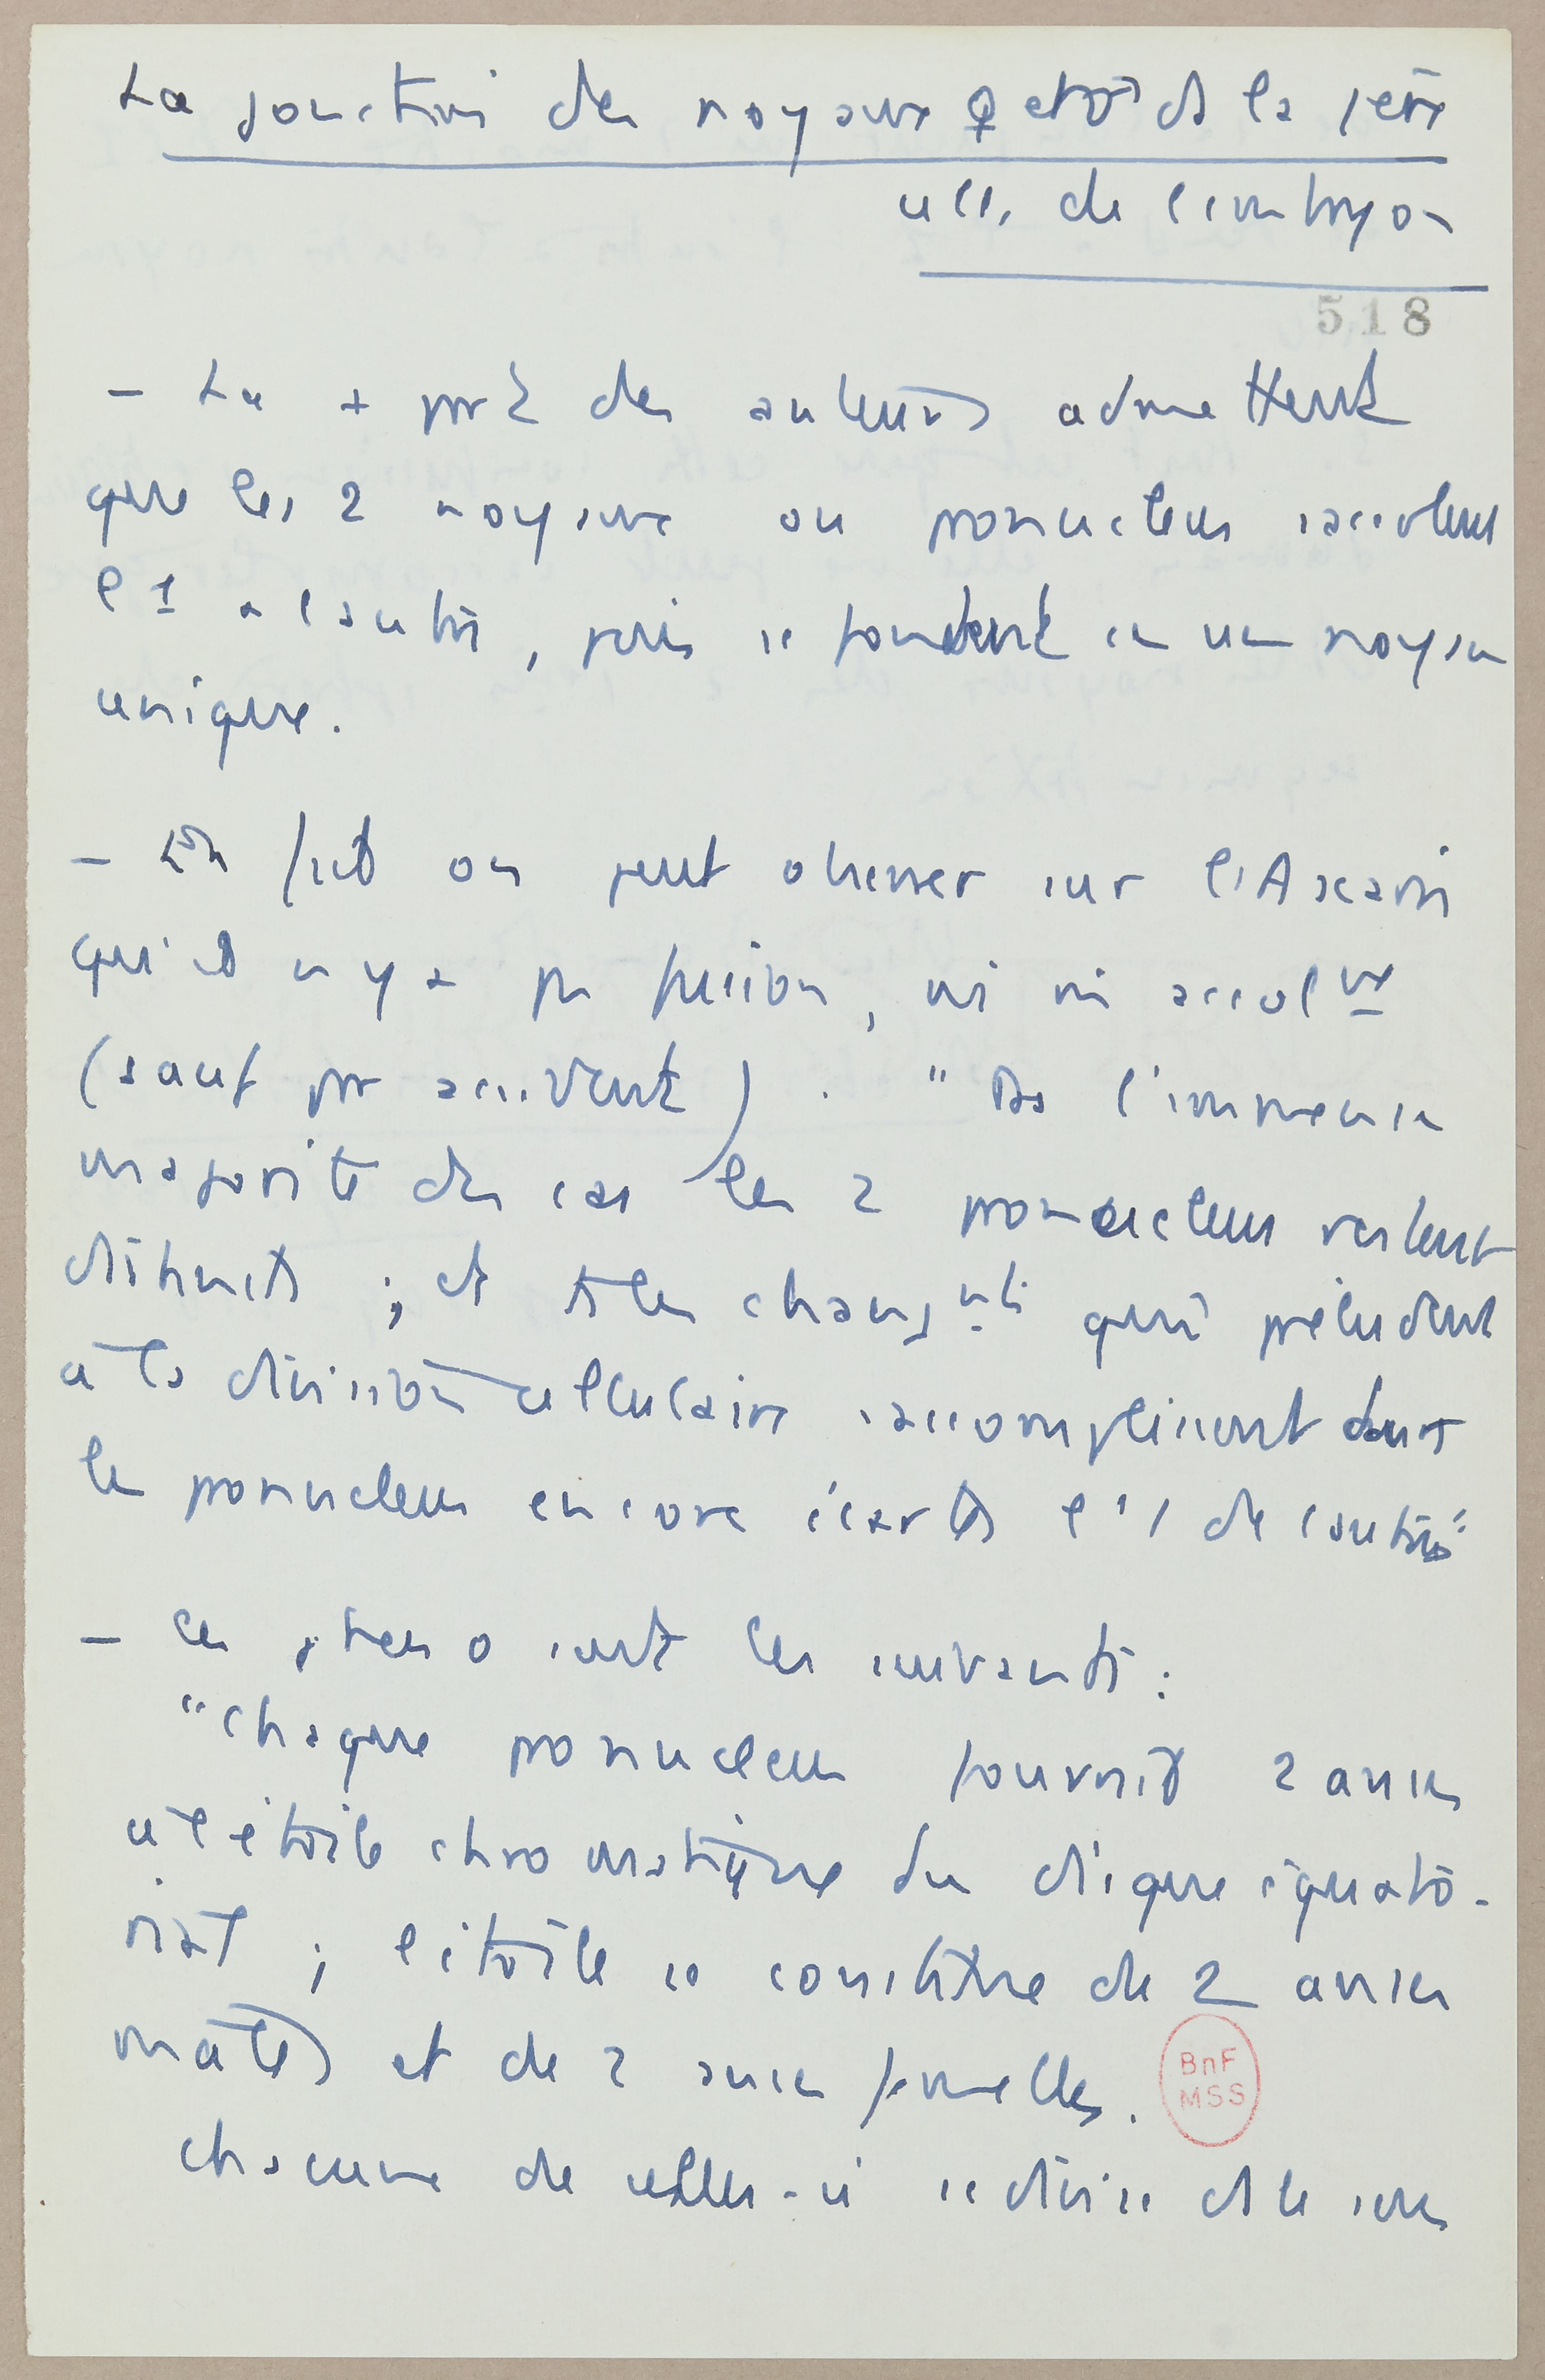 La jonction des noyaux ♀ et ♂ ds la 1ère
cell. de l'embryon
518
- La + prt des auteurs admettent
que les 2 noyaux ou pronucleus s'accolent
l'1 à l'autre, puis se fondent en un noyau
unique.
- En fait on peut observer sur l'Ascaris
qu'il n'y a pas fusion, ni ni accolmt
(sauf par accident). "Ds l'immense
majorité des cas les 2 pronucleus restent
distincts ; et ts les changmts qui préludent
à la division cellulaire s'accomplissent dans
les pronucleus encore écartés l'1 de l'autre"
- Ces phen o sont les suivants :
"Chaque pronucleus fournit 2 anses
à l'étoile chromatique du disque équato-
rial ; l'étoile se constitue de 2 anses
mâles et de 2 anses femelles.
BnF
MSS
Chacune de celles-ci se divise ds le sens